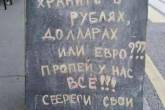 ХРАНИТЬ В
РУБЛЯХ,
ДОЛЛАРАХ
ИЛИ ЕВРО???
ПРОПЕЙ У НАС
ВСЁ!!!
СБЕРЕГИ СВОИ